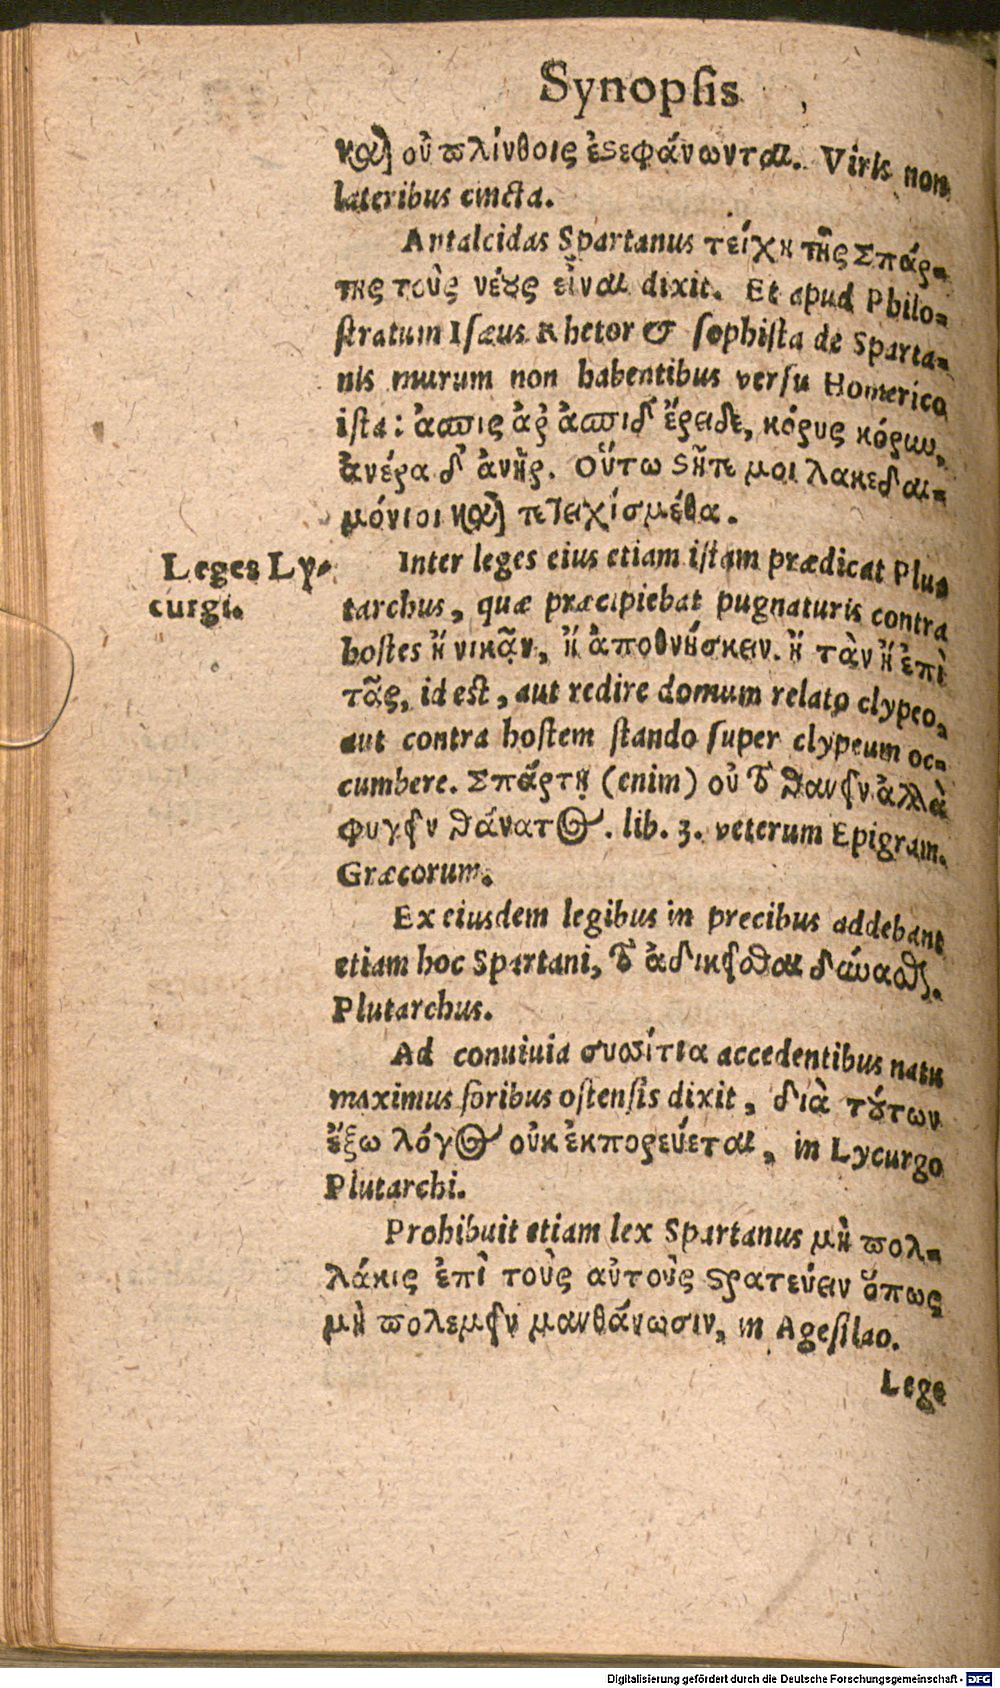 Synopſis
καὶ οὐ πλίνθοις ἐστεφάνωνται. Viris non
lateribus cincta.
Antalcidas Spartanus τείχη τῆς Σπάρ-
της τοὺς νέους εἶναι dixit. Et apud Philo-
ſtratum Iſæus Rhetor & ſophiſta de Sparta-
nis murum non habentibus verſu Homerico
iſta: ἀσπις ἀῤ ἀσπιδ̓ ἔρειδε, κόρυς κόρυν,
ἀνέρα δ̓ ἀνὴρ. Οὕτω στῆτε μοι λακεδαι-
μόνιοι καὶ τετειχίσμέθα.
Leges Ly-
curgi.
Inter leges eius etiam iſtam prædicat Plu-
tarchus, quæ præcipiebat pugnaturis contra
hoſtes ἢ νικᾷν, ἢ ἀποθνήσκειν. ἢ τὰν ἢ ἐπὶ
τᾶς, id eſt, aut redire domum relato clypeo,
aut contra hoſtem ſtando ſuper clypeum oc-
cumbere. Σπάρτῃ (enim) οὐ τὸ θανεῖν ἀλλὰ
φυγεῖν θάνατος. lib. 3. veterum Epigram.
Græcorum.
Ex eiusdem legibus in precibus addebant
etiam hoc Spartani, τὸ ἀδικεῖσθαι δύνασθαι.
Plutarchus.
Ad conuiuia συσσίτια accedentibus natu
maximus foribus oſtenſis dixit, διὰ τούτων
ἔξω λόγος οὐκ ἐκπορεύεται, in Lycurgo
Plutarchi.
Prohibuit etiam lex Spartanus μὴ πολ-
λάκις ἐπὶ τοὺς αὐτοὺς στρατεύειν ὅπως
μὴ πολεμεῖν μανθάνωσιν, in Ageſilao.
Lege
Digitalisierung gefördert durch die Deutsche Forschungsgemeinschaft - DFG